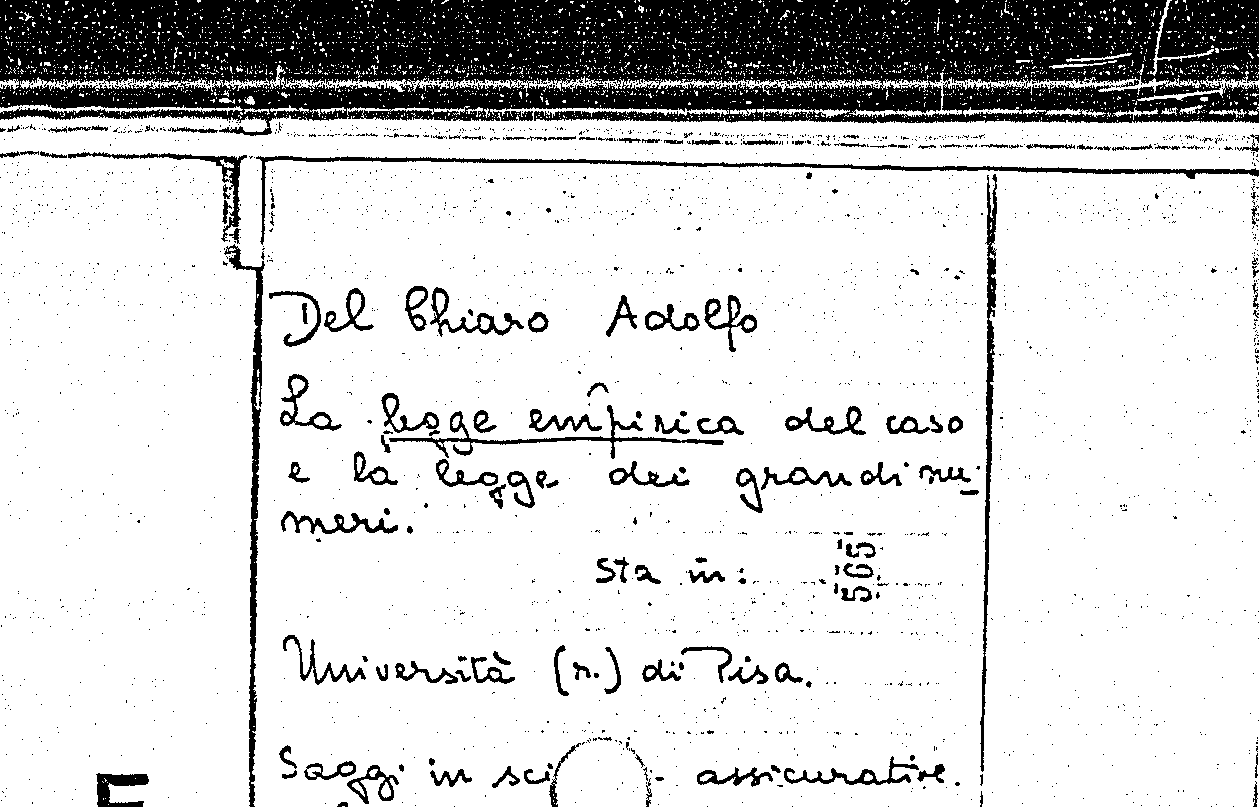 Del Chiaro Adolfo
La legge empirica del caso
e la legge dei grandi nu-
meri.
Sta in: 565
Università (r.) di Pisa.
Saggi in sci - assicurative.
E